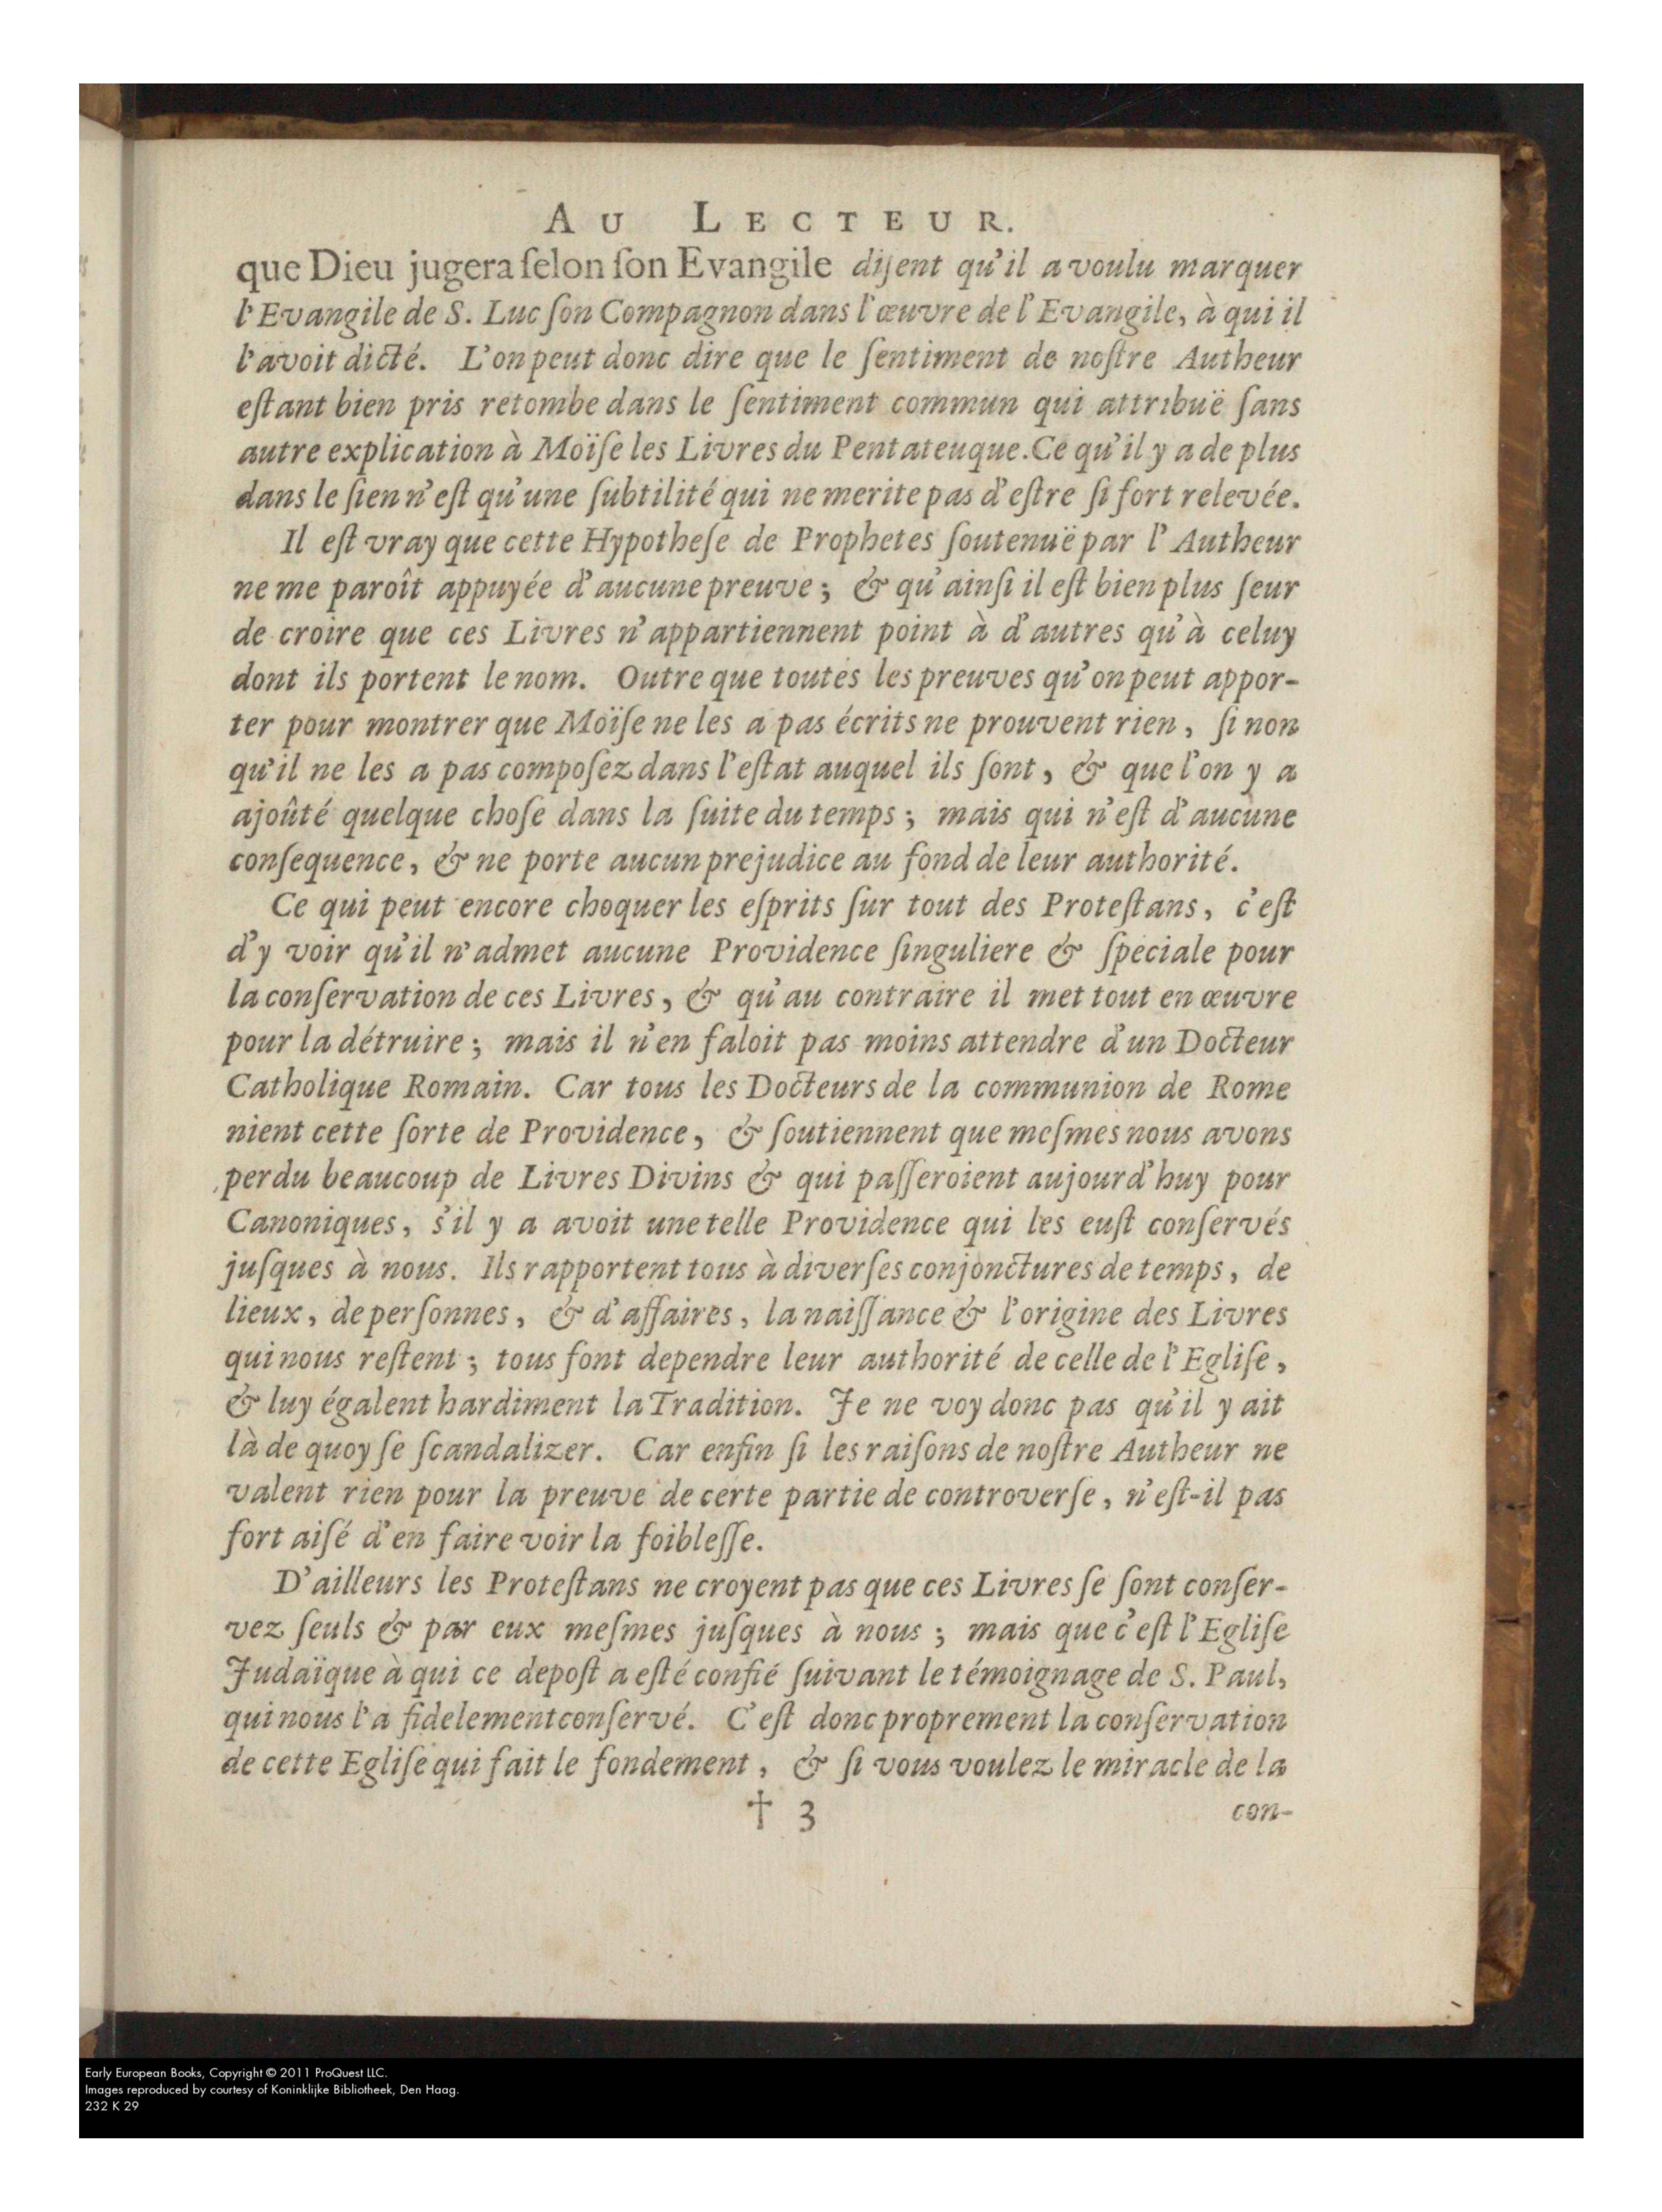 AU LECTEUR.
que Dieu jugera ſelon ſon Evangile diſent qu'il a voulu marquer
l'Evangile de S. Luc ſon Compagnon dans l'œuvre de l'Evangile, à qui il
l'avoit dicté. L'on peut donc dire que le ſentiment de noſtre Autheur
eſtant bien pris retombe dans le ſentiment commun qui attribuë ſans
autre explication à Moïſe les Livres du Pentateuque. Ce qu'il y a de plus
dans le ſien n'eſt qu'une ſubtilité qui ne merite pas d'eſtre ſi fort relevée.
Il eſt vray que cette Hypotheſe de Prophetes ſoutenuë par l'Autheur
ne me paroît appuyée d'aucune preuve; & qu'ainſi il eſt bien plus ſeur
de croire que ces Livres n'appartiennent point à d'autres qu'à celuy
dont ils portent le nom. Outre que toutes les preuves qu'on peut appor-
ter pour montrer que Moïſe ne les a pas écrits ne prouvent rien, ſi non
qu'il ne les a pas compoſez dans l'eſtat auquel ils ſont, & que l'on y a
ajoûté quelque choſe dans la ſuite du temps; mais qui n'eſt d'aucune
conſequence, & ne porte aucun prejudice au fond de leur authorité.
Ce qui peut encore choquer les eſprits ſur tout des Proteſtans, c'eſt
d'y voir qu'il n'admet aucune Providence ſinguliere & ſpeciale pour
la conſervation de ces Livres, & qu'au contraire il met tout en œuvre
pour la détruire; mais il n'en faloit pas moins attendre d'un Docteur
Catholique Romain. Car tous les Docteurs de la communion de Rome
nient cette ſorte de Providence, & ſoutiennent que meſmes nous avons
perdu beaucoup de Livres Divins & qui paſſeroient aujourd'huy pour
Canoniques, s'il y a avoit une telle Providence qui les euſt conſervés
juſques à nous. Ils rapportent tous à diverſes conjonctures de temps, de
lieux, de perſonnes, & d'affaires, la naiſſance & l'origine des Livres
qui nous reſtent; tous font dependre leur authorité de celle de l'Egliſe,
& luy égalent hardiment la Tradition. Je ne voy donc pas qu'il y ait
là de quoy ſe ſcandalizer. Car enfin ſi les raiſons de noſtre Autheur ne
valent rien pour la preuve de certe partie de controverſe, n'eſt-il pas
fort aiſé d'en faire voir la foibleſſe.
D'ailleurs les Proteſtans ne croyent pas que ces Livres ſe ſont conſer-
vez ſeuls & par eux meſmes juſques à nous; mais que c'eſt l'Egliſe
Judaïque à qui ce depoſt a eſté confié ſuivant le témoignage de S. Paul,
qui nous l'a fidelement conſervé. C'eſt donc proprement la conſervation
de cette Egliſe qui fait le fondement, & ſi vous voulez le miracle de la
† 3 con-
Early European Books, Copyright © 2011 ProQuest LLC.
Images reproduced by courtesy of Koninklijke Bibliotheek, Den Haag.
232 K 29